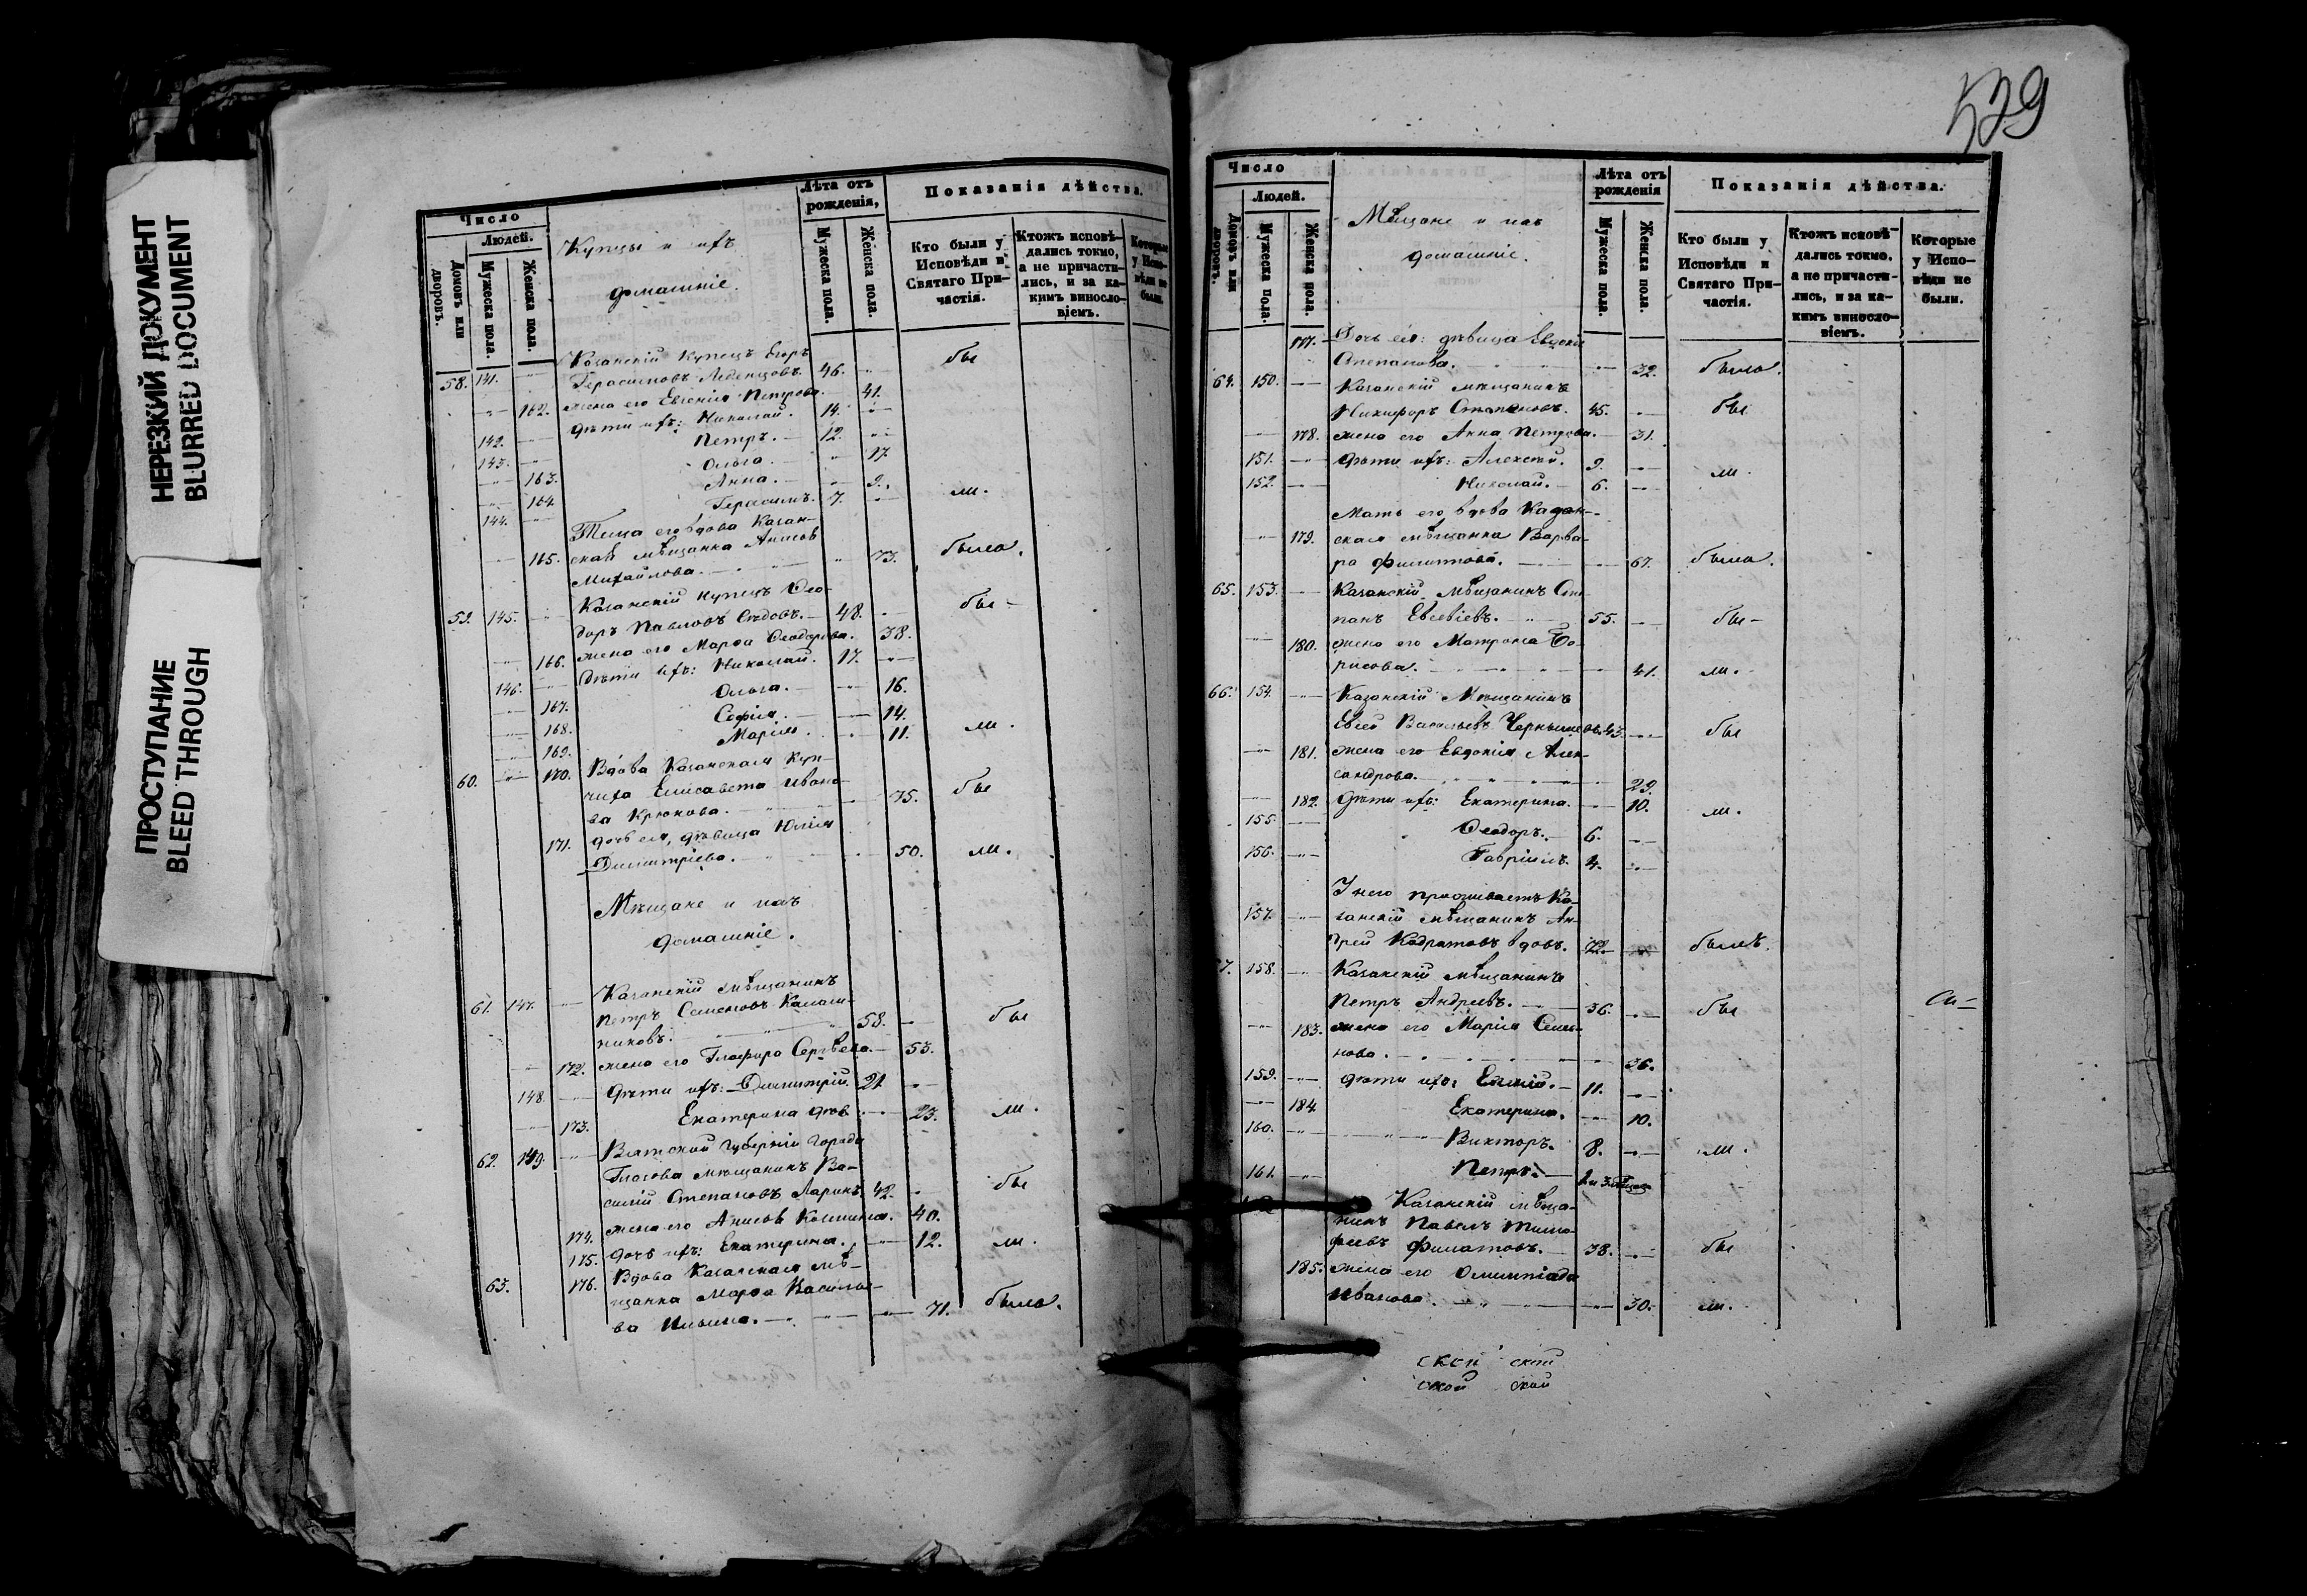 НЕРЕЗКИЙ ДОКУМЕНТ
BLURRED DOCUMENT
ПРОСТУПАНИЕ
BLEED THROUGH
Число
Людей.
Домовъ или дворовъ.
Мужеска пола.
Женска пола.
Купцы и ихъ
домашніе.
Лѣта отъ рожденія,
Мужеска пола.
Женска пола.
Показанія дѣйства.
Кто были у Исповѣди и Святаго Причастія.
Ктожъ исповѣдались токмо, а не причастились, и за какимъ винословіемъ.
Которые у Исповѣди не были.
58. 141. Казанскій купецъ Егоръ
Герасимовъ Леденцовъ. 46. бы
162. жена его Евгенія Петрова. 41.
142. дѣти ихъ: Николай. 14.
143. Петръ. 12.
163. Ольга. 17
164. Анна. 9.
144. Герасимъ. 7. ли.
Теща его вдова Казан-
165. ская мѣщанка Анисья
Михайлова. 73. была.
59. 145. Казанскій купецъ Ѳео-
доръ Павловъ Сѣдовъ. 48. бы-
166. жена его Марѳа Ѳеодорова. 38.
146. дѣти ихъ: Николай. 17.
167. Ольга. 16.
168. Софія. 14.
169. Марія. 11. ли.
60. 170. Вдова Казанская Куп-
чиха Елисавета Ивано-
ва Крюкова. 75. бы
171. дочь ея, дѣвица Юлія
Димитріева. 50. ли.
Мѣщане и ихъ
домашніе.
61. 147. Казанскій мѣщанинъ
Петръ Семеновъ Калаш-
никовъ. 58. бы
172. жена его Глафира Сергѣева. 53.
148. дѣти ихъ: Димитрій. 21
173. Екатерина дѣв. 23. ли.
62. 149. Вятской губерніи города
Глазова мѣщанинъ Ва-
силій Степановъ Ларинъ. 42. бы
174. жена его Анисья Космина. 40.
175. дочь ихъ: Екатерина. 12. ли.
63. 176. Вдова Казанская мѣ-
щанка Марѳа Василье-
ва Ильина. 71. была.
529
Число
Людей.
Домовъ или дворовъ.
Мужеска пола.
Женска пола.
Мѣщане и ихъ
домашніе.
Лѣта отъ рожденія
Мужеска пола.
Женска пола.
Показанія дѣйства.
Кто были у Исповѣди и Святаго Причастія.
Ктожъ исповѣдались токмо, а не причастились, и за какимъ винословіемъ.
Которые у Исповѣди не были.
177. Дочь ея: дѣвица Евдокія
Степанова. 32. была.
64. 150. Казанскій мѣщанинъ
Никифоръ Степановъ. 45. бы
178. жена его Анна Петрова. 31.
151. дѣти ихъ: Алексей. 9. ли.
152. Николай. 6.
Мать его вдова Казан-
179. ская мѣщанка Варва-
ра Филиппова. 67. была.
65. 153. Казанскій мѣщанинъ Сте-
панъ Евсевіевъ. 55. бы-
180. жена его Матрона Бо-
рисова. 41. ли.
66. 154. Казанскій Мѣщанинъ
Евсей Васильевъ Чернышевъ. 43. бы
181. жена его Евдокія Алек-
сандрова. 29.
182. дѣти ихъ: Екатерина. 10. ли.
155. Ѳеодоръ. 6.
156. Гавріилъ. 4.
У него проживаетъ Ка-
157. занскій мѣщанинъ Ан-
дрей Кодратовъ вдов. 72. былъ.
7. 158. Казанскій мѣщанинъ
Петръ Андреевъ. 36. бы
183. жена его Марія Семе-
нова. 36.
159. дѣти ихъ: 11.
184. Екатерина. 10.
160. Викторъ. 8. ли.
161. Петръ.
Казанскій мѣща-
нинъ Павелъ Тимо-
феевъ Филатовъ. 38. бы
185. жена его Олимпіада
Иванова. 30. ли.
ской ской
ской ской